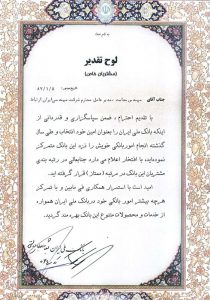 لوح تقدیر
(مشتریان خاص)
جناب آقای
مدیر عامل محترم شرکت مبینه سی ایران ارتباط
با تقدیم احترام، ضمن سپاسگزاری و قدردانی از
اینکه بانک ملی ایران را بعنوان امین خود انتخاب و طی سال
گذشته انجام امور بانکی خویش را نزد این بانک متمرکز
نموده‌اید، با افتخار اعلام می دارد جنابعالی در رتبه بندی
مشتریان این بانک در مرتبه (ممتاز) قرار گرفته اید.
امید است با استمرار همکاری فی مابین و با تمرکز
هرچه بیشتر امور بانکی خود در بانک ملی ایران همواره
از خدمات و محصولات متنوع این بانک بهره مند گردید.
بانک ملی ایران